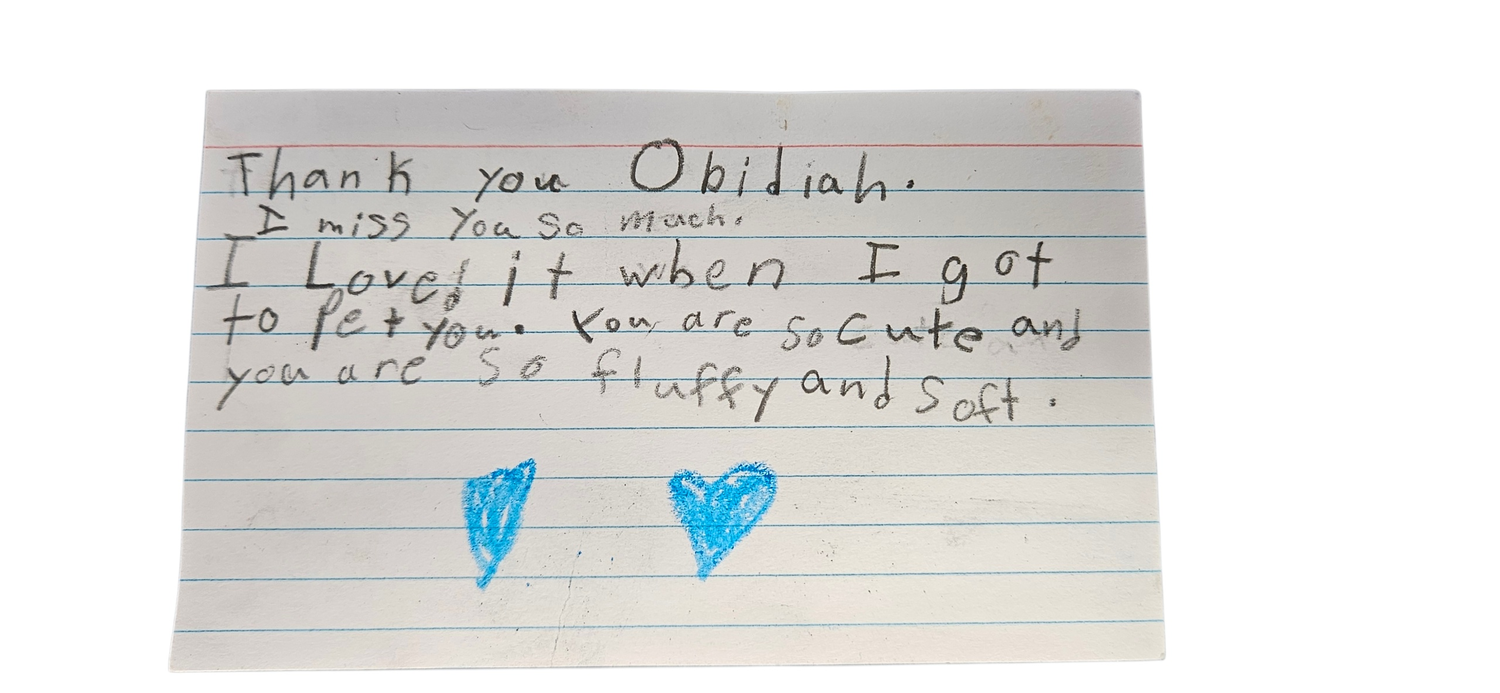 Thank you Obidiah.
I miss you so much.
I Loved it when I got
to Pet you. You are so cute and
you are so fluffy and soft.